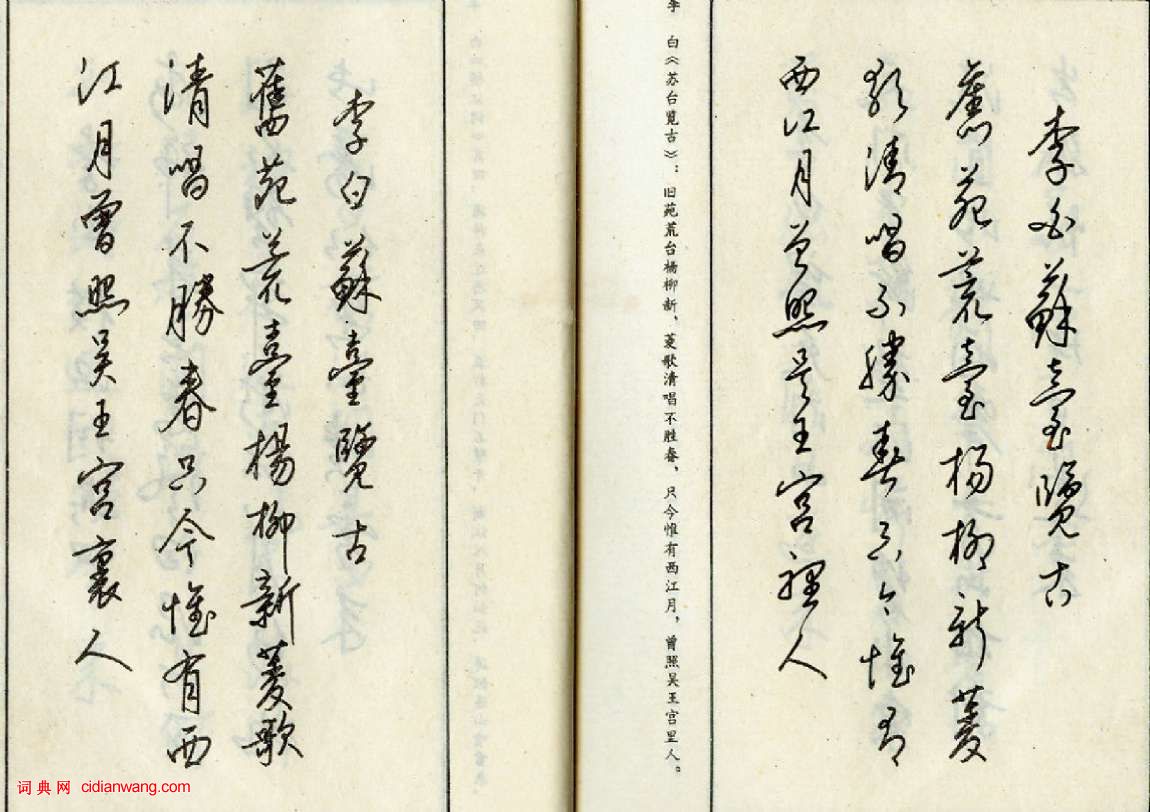 李白蘇臺覽古
舊苑荒臺楊柳新菱
歌清唱不勝春只今惟有
西江月曾照吴王宫裡人
李 白《苏台览古》：旧苑荒台杨柳新，菱歌清唱不胜春，只今惟有西江月，曾照吴王宫里人。
李白蘇臺覽古
舊苑荒臺楊柳新菱歌
清唱不勝春只今惟有西
江月曾照吴王宫裏人
词典网 cidianwang.com